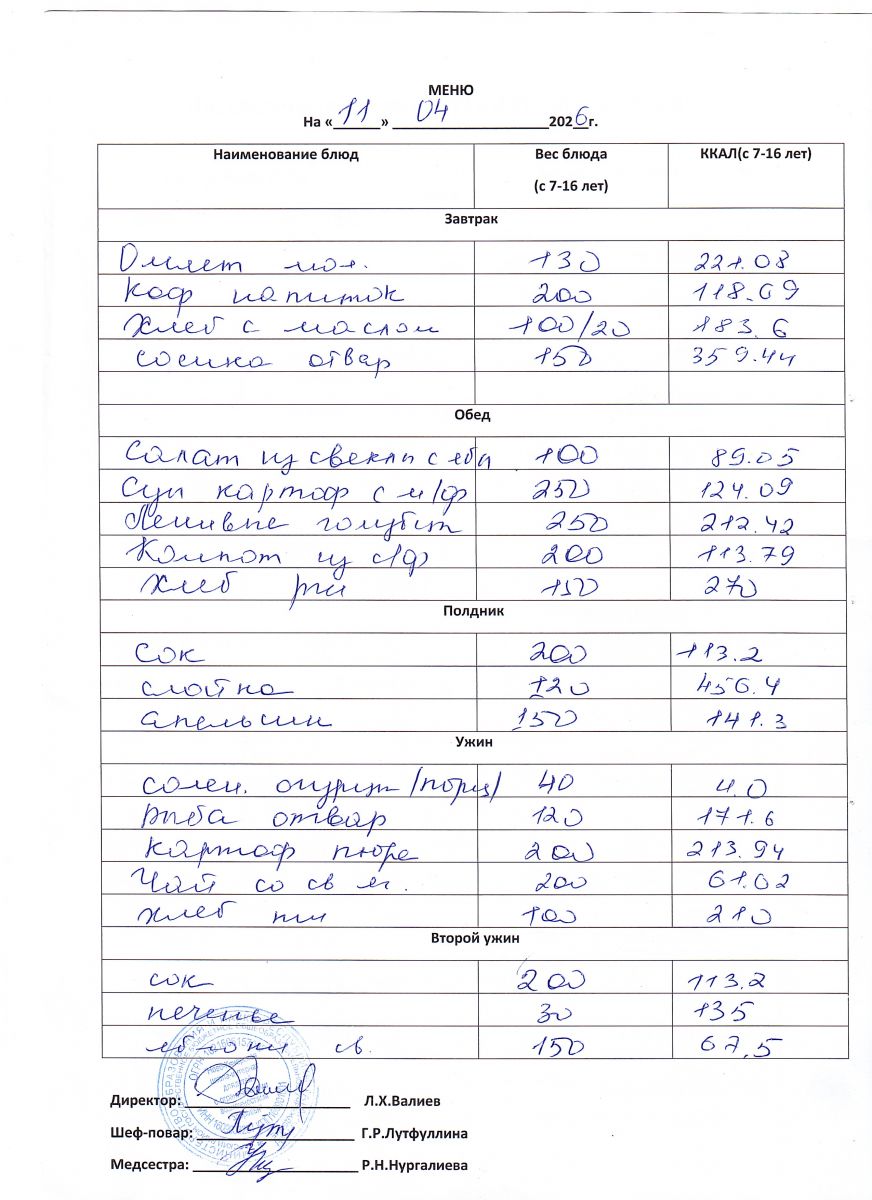 МЕНЮ
На «11» 04 2026г.
Наименование блюд Вес блюда (с 7-16 лет) ККАЛ(с 7-16 лет)
Завтрак
Омлет мол. 130 221.08
Коф напиток 200 118.69
Хлеб с маслом 100/20 183.6
сосика отвар 150 359.44
Обед
Салат из свеклы с ябл 100 89.05
Суп картоф с м/ф 250 124.09
Ленивые голубцы 250 212.42
Компот из с/ф 200 113.79
Хлеб рж 150 270
Полдник
Сок 200 113.2
слойка 120 456.4
апельсин 150 141.3
Ужин
солен. огурцы /порц/ 40 4.0
рыба отвар 120 171.6
картоф пюре 200 213.94
Чай со св яг. 200 61.62
хлеб пш 100 210
Второй ужин
сок 200 113.2
печенье 30 135
яблоки св. 150 67,5
Директор: Л.Х.Валиев
Шеф-повар: Г.Р.Лутфуллина
Медсестра: Р.Н.Нургалиева